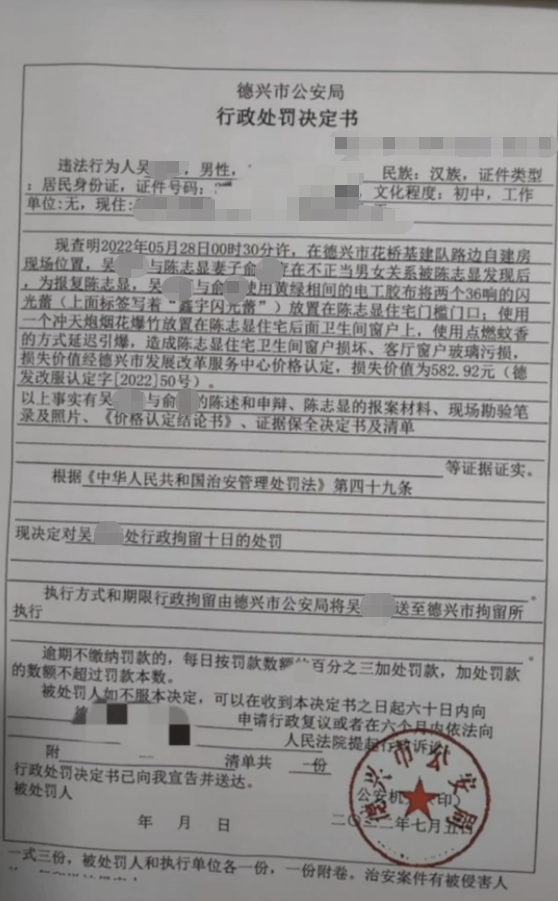 德兴市公安局
行政处罚决定书
违法行为人吴 ，男性， 民族：汉族，证件类型
：居民身份证，证件号码： ，文化程度：初中，工作
单位:无，现住:
现查明2022年05月28日00时30分许，在德兴市花桥基建队路边自建房
现场位置，吴 与陈志显妻子俞 存在不正当男女关系被陈志显发现后
，为报复陈志显，吴 与俞 使用黄绿相间的电工胶布将两个36响的闪
光蕾（上面标签写着“鑫宇闪光蕾”）放置在陈志显住宅门槛门口；使用
一个冲天炮烟花爆竹放置在陈志显住宅后面卫生间窗户上，使用点燃蚊香
的方式延迟引爆，造成陈志显住宅卫生间窗户损坏、客厅窗户玻璃污损，
损失价值经德兴市发展改革服务中心价格认定，损失价值为582.92元（德
发改服认定字[2022]50号）。
以上事实有吴 与俞 的陈述和申辩、陈志显的报案材料、现场勘验笔
录及照片、《价格认定结论书》、证据保全决定书及清单
等证据证实。
根据《中华人民共和国治安管理处罚法》第四十九条
现决定对吴 处行政拘留十日的处罚
。
执行方式和期限行政拘留由德兴市公安局将吴 送至德兴市拘留所
执行
。
逾期不缴纳罚款的，每日按罚款数额的百分之三加处罚款，加处罚款
的数额不超过罚款本数。
被处罚人如不服本决定，可以在收到本决定书之日起六十日内向
申请行政复议或者在六个月内依法向
人民法院提起行政诉讼。
附 清单共 一份
行政处罚决定书已向我宣告并送达。
被处罚人 公安机 印）
年 月 日 二〇二二年七月五日
德兴市公安局
一式三份，被处罚人和执行单位各一份，一份附卷。治安案件有被侵害人